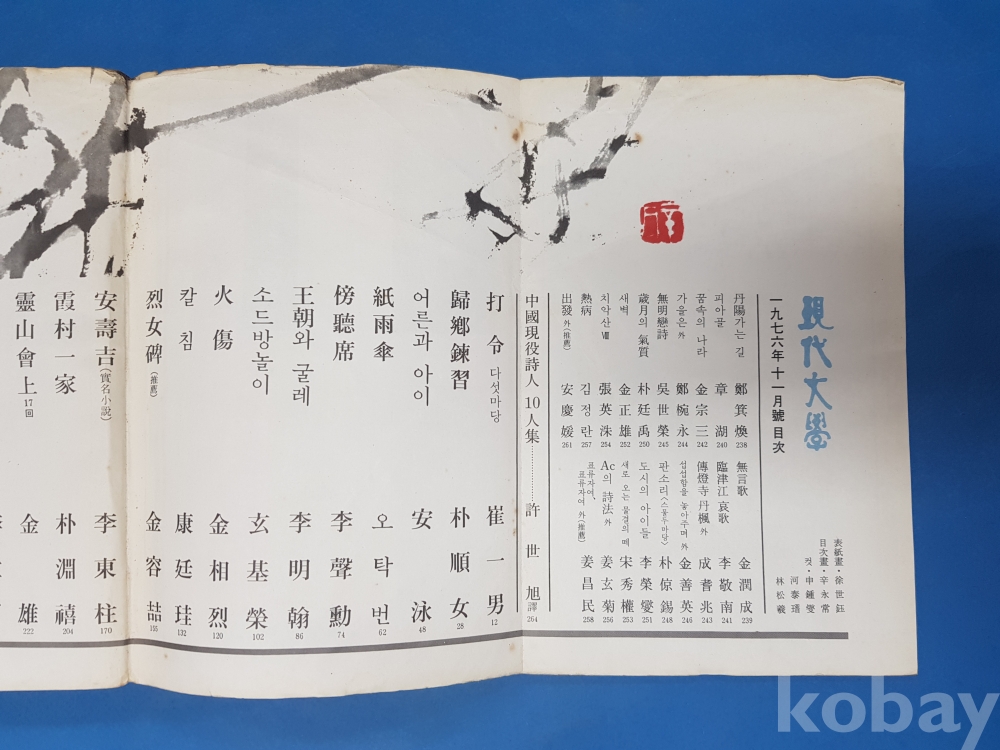 現代文學
一九七六年十一月號 目次
表紙畫·徐世鈺
目次畫·辛永常
컷·申鍾燮
河泰瑨
林松羲
丹陽가는 길 鄭箕煥 238
無言歌 金潤成 239
피아골 章湖 240
臨津江 哀歌 李敬南 241
꿈속의 나라 金宗三 242
傳燈寺 丹楓 外 成耆兆 243
가을은 外 鄭椀永 244
섭섭함을 놓아주며 外 金善英 246
無明戀詩 吳世榮 245
판소리〈스물두마당〉 朴倞錫 248
歲月의 氣質 朴廷禹 250
도시의 아이들 李榮燮 251
새벽 金正雄 252
새로 오는 물결의 떼 宋秀權 253
치악산 Ⅷ 張英洙 254
Ac의 詩法 外 姜玄菊 256
熱病 김정란 257
표류자여, 표류자여 外(推薦) 姜昌民 258
出發 外(推薦) 安慶媛 261
中國現役詩人 10人集 ………… 許世旭 譯 264
打令 다섯마당 崔一男 12
歸鄕鍊習 朴順女 28
어른과 아이 安泳 48
紙雨傘 오탁번 62
傍聽席 李聲勳 74
王朝와 굴레 李明翰 86
소드방놀이 玄基榮 102
火傷 金相烈 120
칼침 康廷珪 132
烈女碑(推薦) 金容喆 155
安壽吉(實名小說) 李東柱 170
霞村一家 朴淵禧 204
靈山會上 17回 金 雄 222
kobay